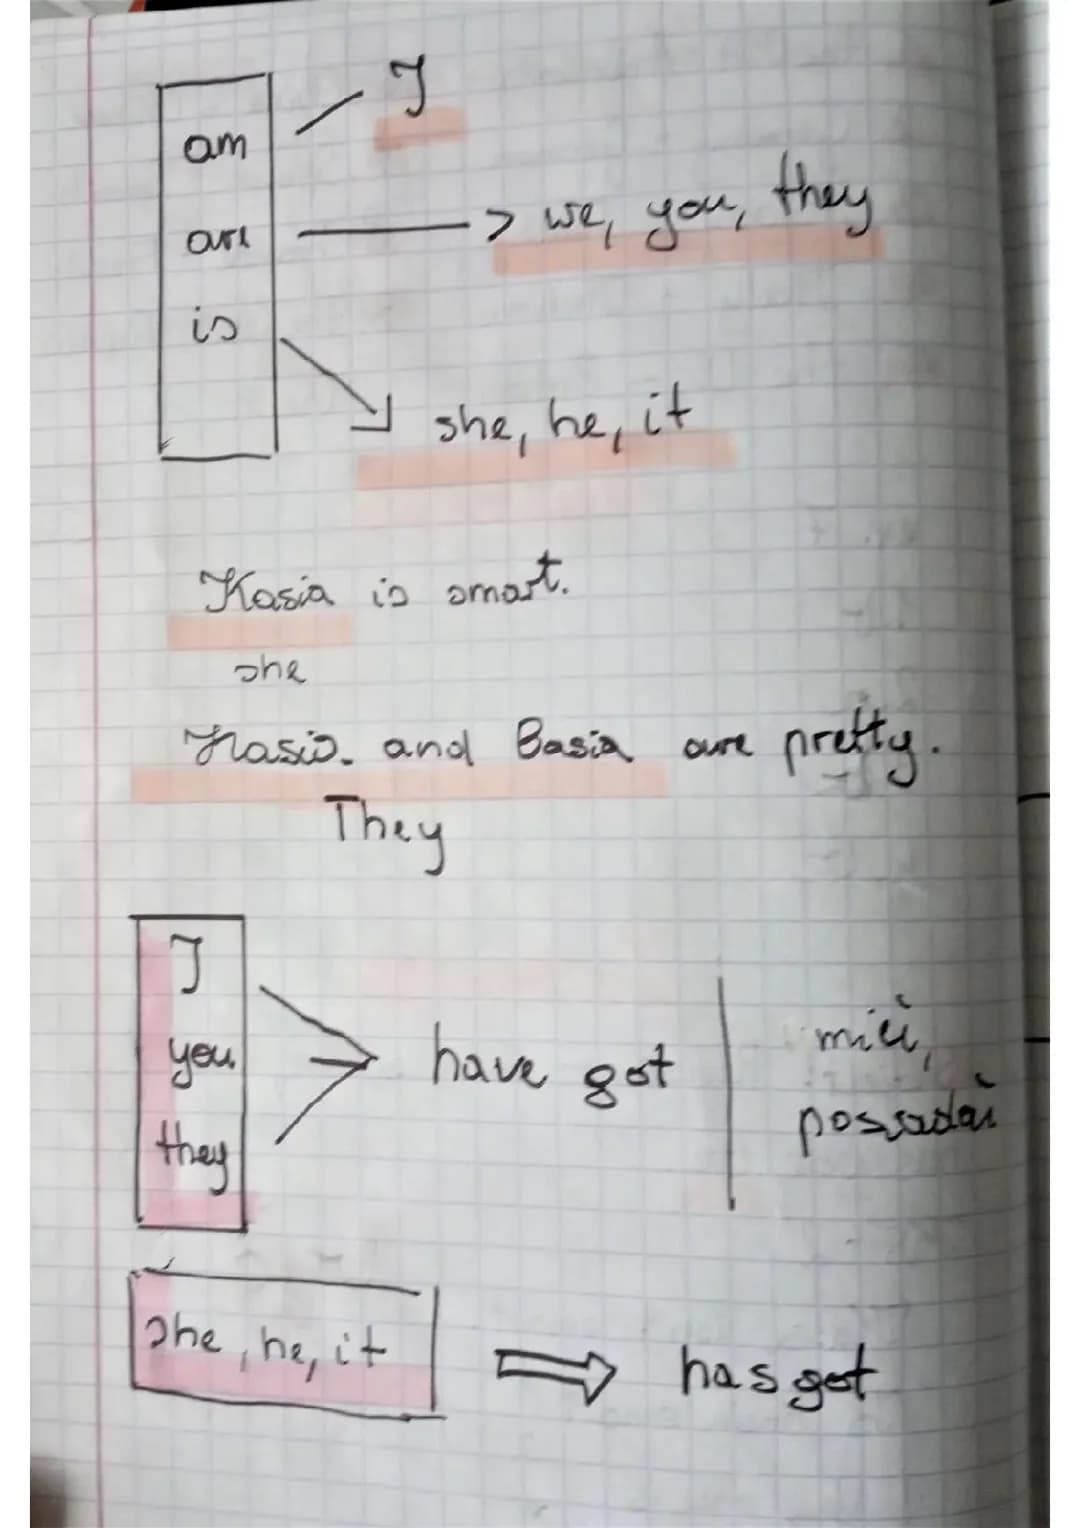 am I
are we, you, they
is
she, he, it
Kasia is smart.
she
Kasia and Basia are pretty.
They
I
you have got mieć,
they posiadać
she, he, it has got